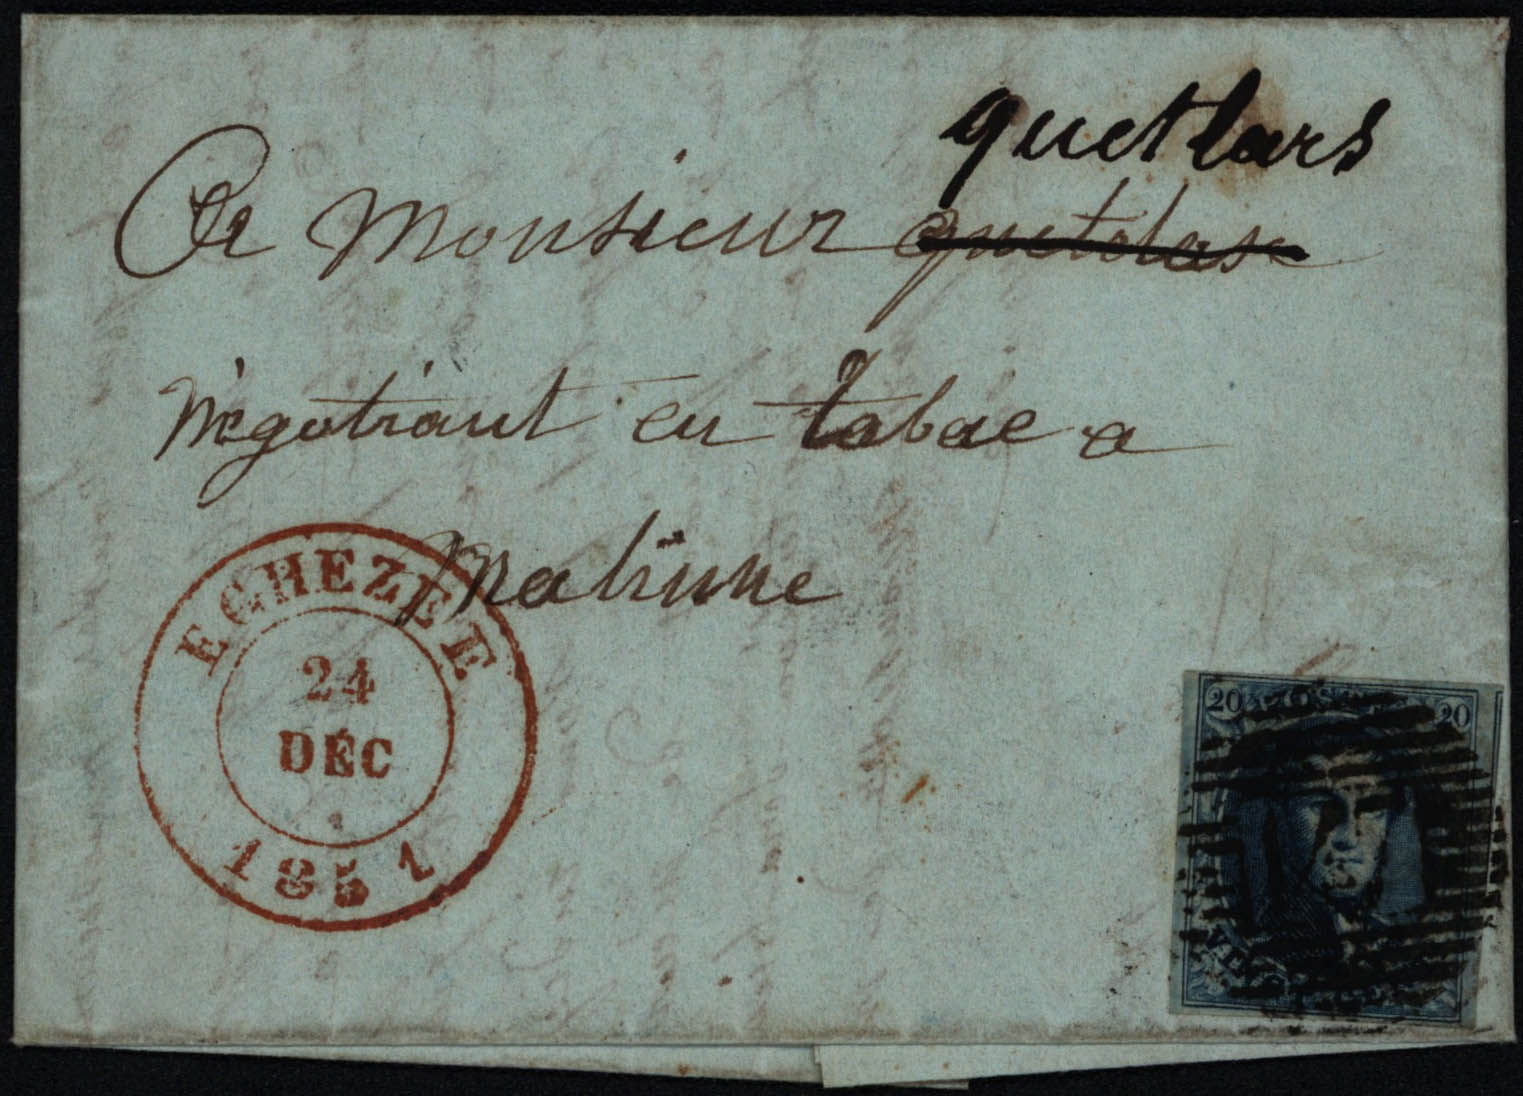 quetlars
A Monsieur quetolase
Negotiant en tabac a
Malinne
EGHEZEE
24
DEC
1851
20 POSTES 20